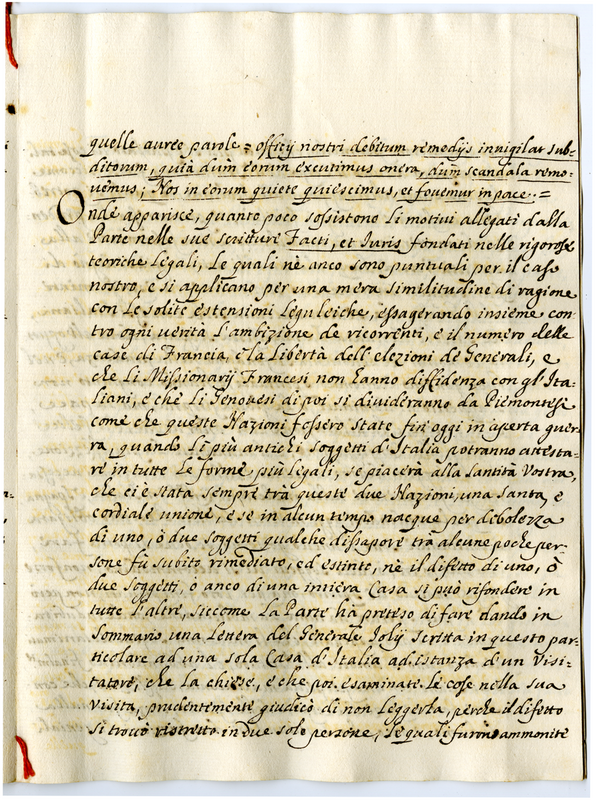 quelle auree parole = officij nostri debitum remedijs invigilar sub-
ditorum, quia dum eorum excutimus onera, dum scandala remo-
vemus; Nos in eorum quiete quiescimus, et fovemur in pace. =
Onde apparisce, quanto poco sossistono li motivi allegati dalla
Parte nelle sue scritture Facti, et Iuris fondati nelle rigorose
teoriche legali, le quali nè anco sono puntuali per il caso
nostro, e si applicano per una mera similitudine di ragione
con le solite estensioni leguleiche, essagerando insieme con-
tro ogni verità l'ambizione de ricorrenti, e il numero delle
case di Francia, e la libertà dell'elezioni de Generali, e
che li Missionarij Francesi non hanno diffidenza con gl'Ita-
liani, e che li Genovesi di poi si divideranno da Piemontesi
come che queste Nazioni fossero state fin'oggi in aperta guer-
ra, quando li più antichi soggetti d'Italia potranno attesta-
re in tutte le forme più legali, se piacerà alla Santità Vostra,
che ci è stata sempre trà queste due Nazioni, una santa, e
cordiale unione, e se in alcun tempo nacque per debolezza
di uno, ò due soggetti qualche dissapore trà alcune poche per-
sone fù subito rimediato, ed estinto, nè il difetto di uno, ò
due soggetti, ò anco di una intiera Casa si può rifondere in
tutte l'altre, siccome la Parte hà preteso di fare dando in
Sommario una lettera del Generale Iolij scritta in questo par-
ticolare ad una sola Casa d'Italia ad istanza d'un Visi-
tatore, che la chiese, e che poi esaminate le cose nella sua
visita, prudentemente giudicò di non leggerla, perche il difetto
si trovò ristretto in due sole persone, le quali furono ammonite